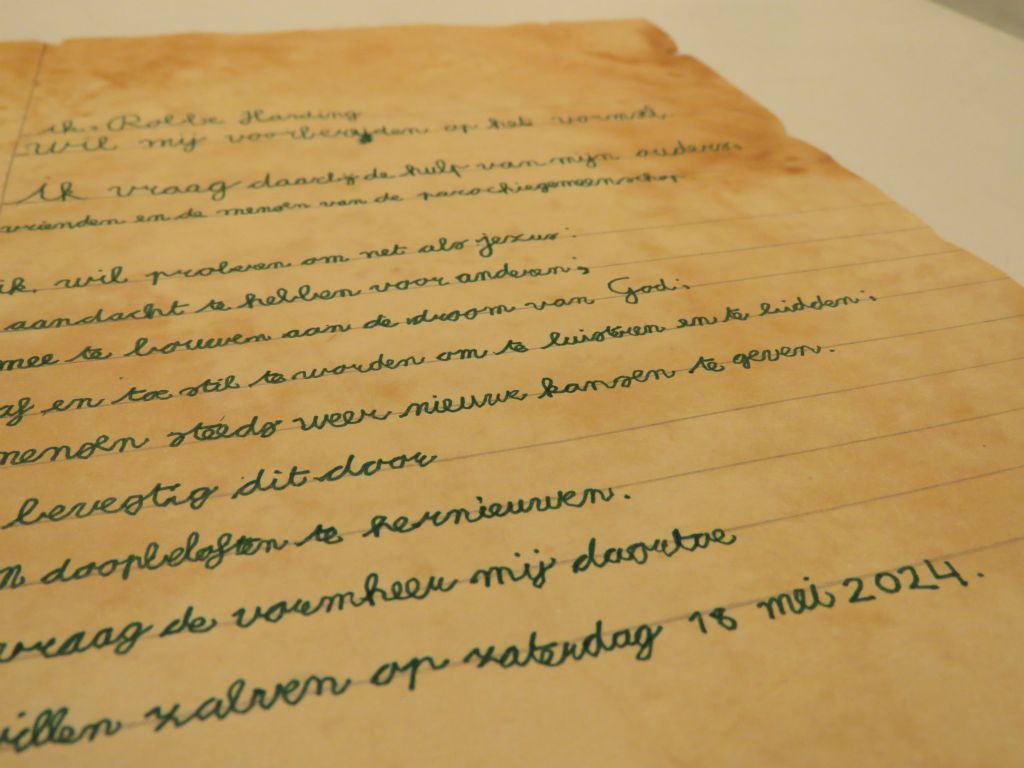 ik, Robbe Harding
wil mij voorbereiden op het vormsel.
ik vraag daarbij de hulp van mijn ouders,
vrienden en de mensen van de parochiegemeenschap
ik wil proberen om net als jezus:
aandacht te hebben voor anderen;
mee te bouwen aan de droom van God;
af en toe stil te worden om te luisteren en te bidden;
mensen steeds weer nieuwe kansen te geven.
bevestig dit door
n doopbeloften te hernieuwen.
vraag de vormheer mij daartoe
willen zalven op zaterdag 18 mei 2024.